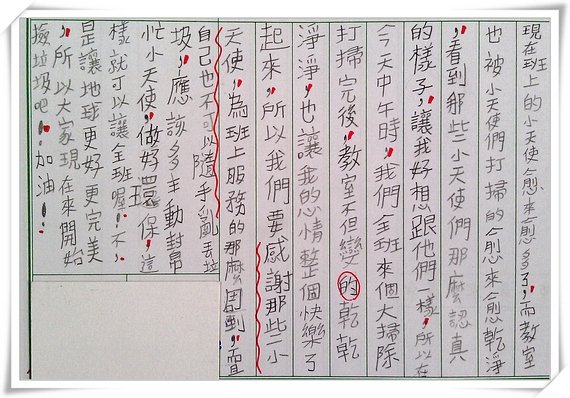 現在班上的小天使愈來愈多了，而教室
也被小天使們打掃的愈來愈乾淨
，看到那些小天使們那麼認真
的樣子，讓我好想跟他們一樣，所以在
今天中午時，我們全班來個大掃除
打掃完後，教室不但變的乾乾
淨淨，也讓我的心情整個快樂了
起來，所以我們要感謝那些小
天使，為班上服務的那麼周到，而且
自己也不可以隨手亂丟垃
圾，應該多主動幫
忙小天使，做好環保，這
樣就可以讓全班喔！不，
是讓地球更好更完美
，所以大家現在來開始
撿垃圾吧！加油！